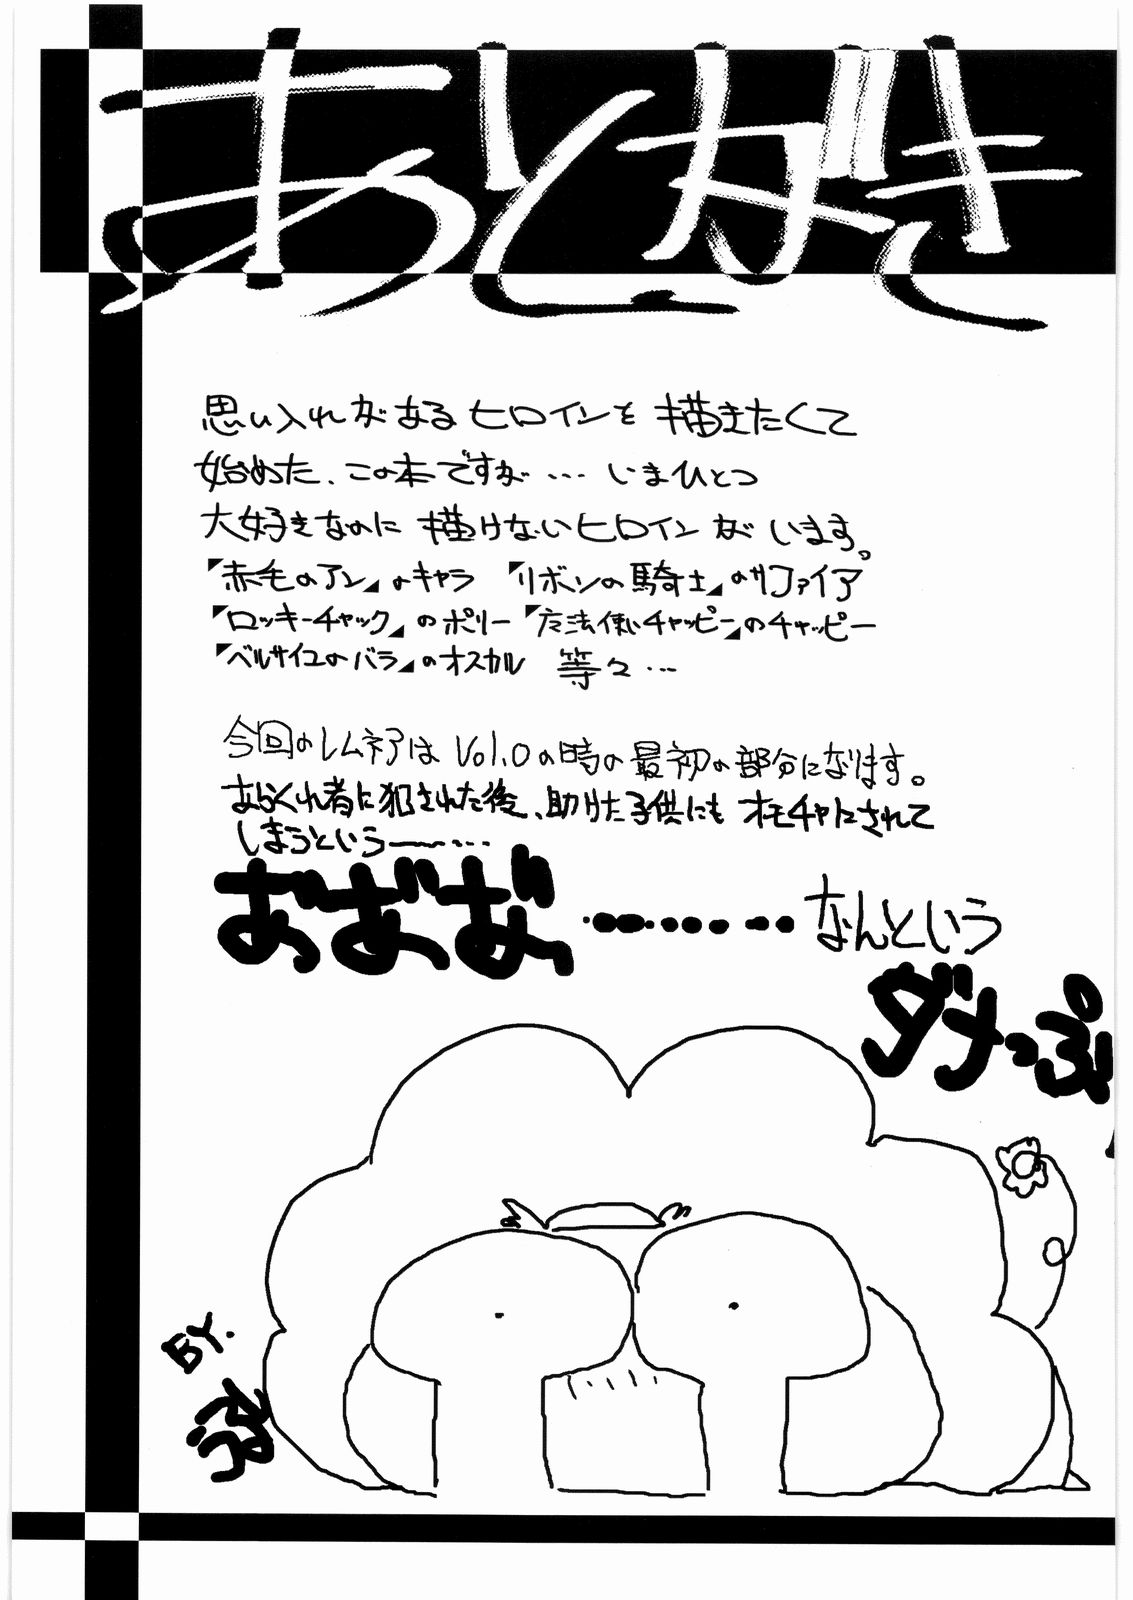 あとがき
思い入れがあるヒロインを描きたくて
始めた、この本ですが…いまひとつ
大好きなのに描けないヒロインがいます。
「赤毛のアン」なキャラ 「リボンの騎士」のサファイア
「ロッキーチャック」のポリー 「魔法使いチャッピー」のチャッピー
「ベルサイユのバラ」のオスカル 等々…
今回のレムネアは Vol.0の時の最初の部分になります。
あらくれ者に犯された後、助けた子供にもオモチャにされて
しまうという――…
おばば………なんという
ダメっぷり
BY.